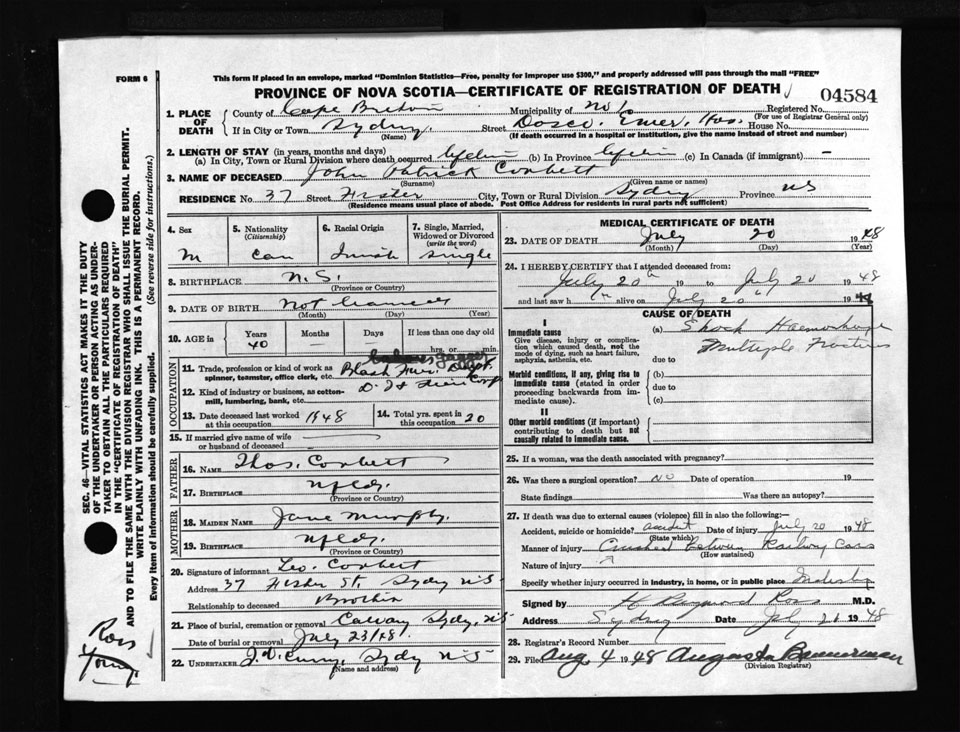 FORM 6
This form if placed in an envelope, marked "Dominion Statistics—Free, penalty for improper use $300," and properly addressed will pass through the mail "FREE"
PROVINCE OF NOVA SCOTIA—CERTIFICATE OF REGISTRATION OF DEATH
04584
1. PLACE OF DEATH
County of Cape Breton Municipality of No 1 Registered No.
(For use of Registrar General only)
If in City or Town Sydney. Street Dosco. Emer. Hos. House No.
(Name) (If death occurred in a hospital or institution, give the name instead of street and number)
2. LENGTH OF STAY (in years, months and days)
(a) In City, Town or Rural Division where death occurred (b) In Province (c) In Canada (if immigrant) —
3. NAME OF DECEASED John Patrick Corbett
(Surname) (Given name or names)
RESIDENCE No 37 Street Fisher City, Town or Rural Division Sydney Province NS
(Residence means usual place of abode. Post Office Address for residents in rural parts not sufficient)
4. Sex M
5. Nationality (Citizenship) can
6. Racial Origin
7. Single, Married, Widowed or Divorced (write the word) single
8. BIRTHPLACE N.S.
(Province or Country)
9. DATE OF BIRTH not
(Month) (Day) (Year)
10. AGE in Years Months Days If less than one day old
40 — — hrs. or min.
OCCUPATION
11. Trade, profession or kind of work as spinner, teamster, office clerk, etc. Blast Fur. Dept.
12. Kind of industry or business, as cotton-mill, lumbering, bank, etc.
13. Date deceased last worked at this occupation 1948
14. Total yrs. spent in this occupation 20
15. If married give name of wife or husband of deceased
FATHER
16. NAME Thos. Corbett
17. BIRTHPLACE Nfld.
(Province or Country)
MOTHER
18. MAIDEN NAME Jane Murphy.
19. BIRTHPLACE Nfld.
(Province or Country)
20. Signature of informant Leo. Corbett
Address 37 Fisher St. Sydney N.S
Relationship to deceased Brother
21. Place of burial, cremation or removal Calvary Sydney, NS
Date of burial or removal July 23/48
22. UNDERTAKER Sydney N-S
(Name and address)
MEDICAL CERTIFICATE OF DEATH
23. DATE OF DEATH July 20 1948
(Month) (Day) (Year)
24. I HEREBY CERTIFY that I attended deceased from:
July 20th 19 to July 20 1948
and last saw him alive on July 20th 1948
CAUSE OF DEATH
I
Immediate cause
Give disease, injury or complication which caused death, not the mode of dying, such as heart failure, asphyxia, asthenia, etc.
(a) Shock Haemorrhage
Multiple
due to
Morbid conditions, if any, giving rise to immediate cause (stated in order proceeding backwards from immediate cause).
(b)
due to
(c)
II
Other morbid conditions (if important) contributing to death but not causally related to immediate cause.
25. If a woman, was the death associated with pregnancy?
26. Was there a surgical operation? No Date of operation 19
State findings Was there an autopsy?
27. If death was due to external causes (violence) fill in also the following:—
Accident, suicide or homicide? accident Date of injury July 20 1948
(State which)
Manner of injury Crushed between Railway Cars
(How sustained)
Nature of injury
Specify whether injury occurred in industry, in home, or in public place Industry
Signed by H Raymond Ross M.D.
Address Sydney Date July 21 1948
28. Registrar's Record Number
29. Filed Aug 4 1948 Augusta Bannerman
(Division Registrar)
SEC. 46—VITAL STATISTICS ACT MAKES IT THE DUTY OF THE UNDERTAKER OR PERSON ACTING AS UNDERTAKER TO OBTAIN ALL THE PARTICULARS REQUIRED IN THE "CERTIFICATE OF REGISTRATION OF DEATH" AND TO FILE THE SAME WITH THE DIVISION REGISTRAR WHO SHALL ISSUE THE BURIAL PERMIT.
WRITE PLAINLY WITH UNFADING INK. THIS IS A PERMANENT RECORD.
Every item of information should be carefully supplied. (See reverse side for instructions.)
Ross